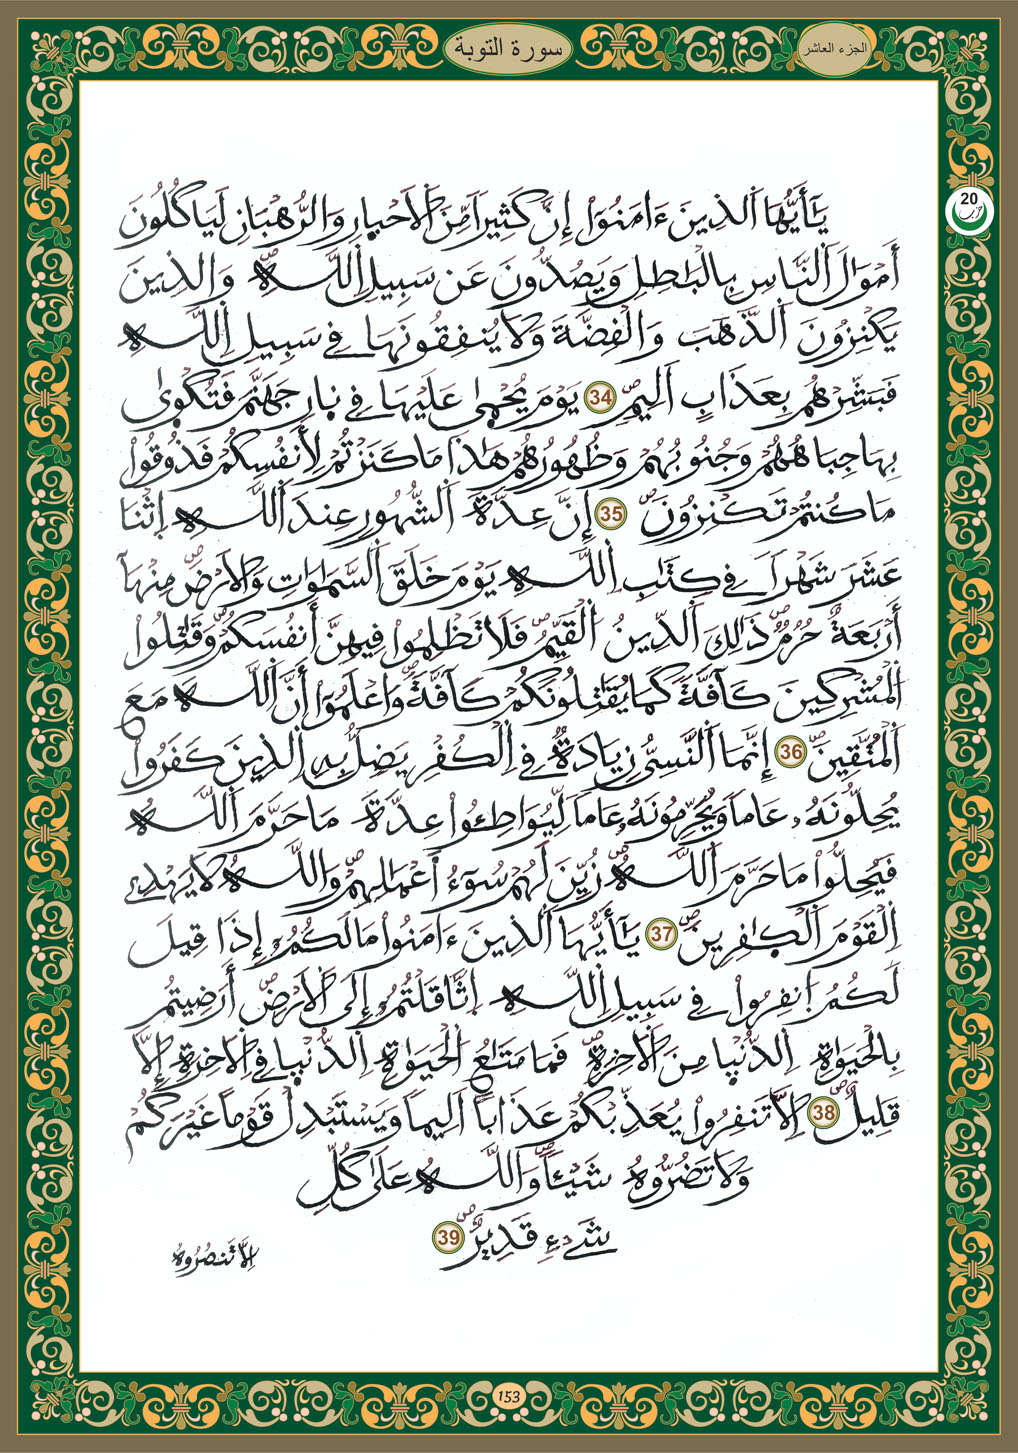 سورة التوبة
الجزء العاشر
20
حزب
يَٰٓأَيُّهَا اَ۬لذِينَ ءَامَنُوٓاْ إِنَّ كَثِيراٗ مِّنَ اَ۬لَاحْبِارِ وَالرُّهْبَانِ لَيَاكُلُونَ
أَمْوَٰلَ اَ۬لنَّاسِ بِالْبَٰطِلِ وَيَصُدُّونَ عَن سَبِيلِ اِ۬للَّهِۖ وَالذِينَ
يَكْنِزُونَ اَ۬لذَّهَبَ وَالْفِضَّةَ وَلَا يُنفِقُونَهَا فِے سَبِيلِ اِ۬للَّهِ
فَبَشِّرْهُم بِعَذَابٍ اَلِيمٖۖ 34 يَوْمَ يُحْمَىٰ عَلَيْهَا فِے نارِ جَهَنَّمَ فَتُكْوَىٰ
بِهَا جِبَاهُهُمْ وَجُنُوبُهُمْ وَظُهُورُهُمْ هَٰذَا مَا كَنَزْتُمْ لِأَنفُسِكُمْ فَذُوقُواْ
مَا كُنتُمْ تَكْنِزُونَۖ 35 إِنَّ عِدَّةَ اَ۬لشُّهُورِ عِندَ اَ۬للَّهِ اِ۪ثْنَا
عَشَرَ شَهْراٗ فِے كِتَٰبِ اِ۬للَّهِ يَوْمَ خَلَقَ اَ۬لسَّمَٰوَٰتِ وَالَارْضَۖ مِنْهَآ
أَرْبَعَةٌ حُرُمٞۖ ذَٰلِكَ اَ۬لدِّينُ اُ۬لْقَيِّمُۖ فَلَا تَظْلِمُواْ فِيهِنَّ أَنفُسَكُمْۖ وَقَٰتِلُواْ
اُ۬لْمُشْرِكِينَ كَآفَّةٗ كَمَا يُقَٰتِلُونَكُمْ كَآفَّةٗۖ وَاعْلَمُوٓاْ أَنَّ اَ۬للَّهَ مَعَ
اَ۬لْمُتَّقِينَۖ 36 إِنَّمَا اَ۬لنَّسِيُّ زِيَادَةٞ فِے اِ۬لْكُفْرِ يَضِلُّ بِهِ اِ۬لذِينَ كَفَرُواْ
يُحِلُّونَهُۥ عَاماٗ وَيُحَرِّمُونَهُۥ عَاماٗ لِّيُوَاطِـُٔواْ عِدَّةَ مَا حَرَّمَ اَ۬للَّهُ
فَيُحِلُّواْ مَا حَرَّمَ اَ۬للَّهُۖ زُيِّنَ لَهُمْ سُوٓءُ اَعْمَٰلِهِمْۖ وَاللَّهُ لَا يَهْدِے
اِ۬لْقَوْمَ اَ۬لْكٰ۪فِرِينَۖ 37 يَٰٓأَيُّهَا اَ۬لذِينَ ءَامَنُواْ مَا لَكُمُۥٓ إِذَا قِيلَ
لَكُمُ اُ۪نفِرُواْ فِے سَبِيلِ اِ۬للَّهِ اِ۪ثَّاقَلْتُمُۥٓ إِلَى اَ۬لَارْضِۖ أَرَضِيتُم
بِالْحَيَوٰةِ اِ۬لدُّنْي۪ا مِنَ اَ۬لَاخِرَةِۖ فَمَا مَتَٰعُ اُ۬لْحَيَوٰةِ اِ۬لدُّنْي۪ا فِے اِ۬لَاخِرَةِ إِلَّا
قَلِيلٌۖ 38 اِلَّا تَنفِرُواْ يُعَذِّبْكُمْ عَذَاباً اَلِيماٗ وَيَسْتَبْدِلْ قَوْماً غَيْرَكُمْ
وَلَا تَضُرُّوهُ شَيْـٔاٗۖ وَاللَّهُ عَلَىٰ كُلِّ
شَےْءٖ قَدِيرٌۖ 39
اِلَّا تَنصُرُوهُ
153